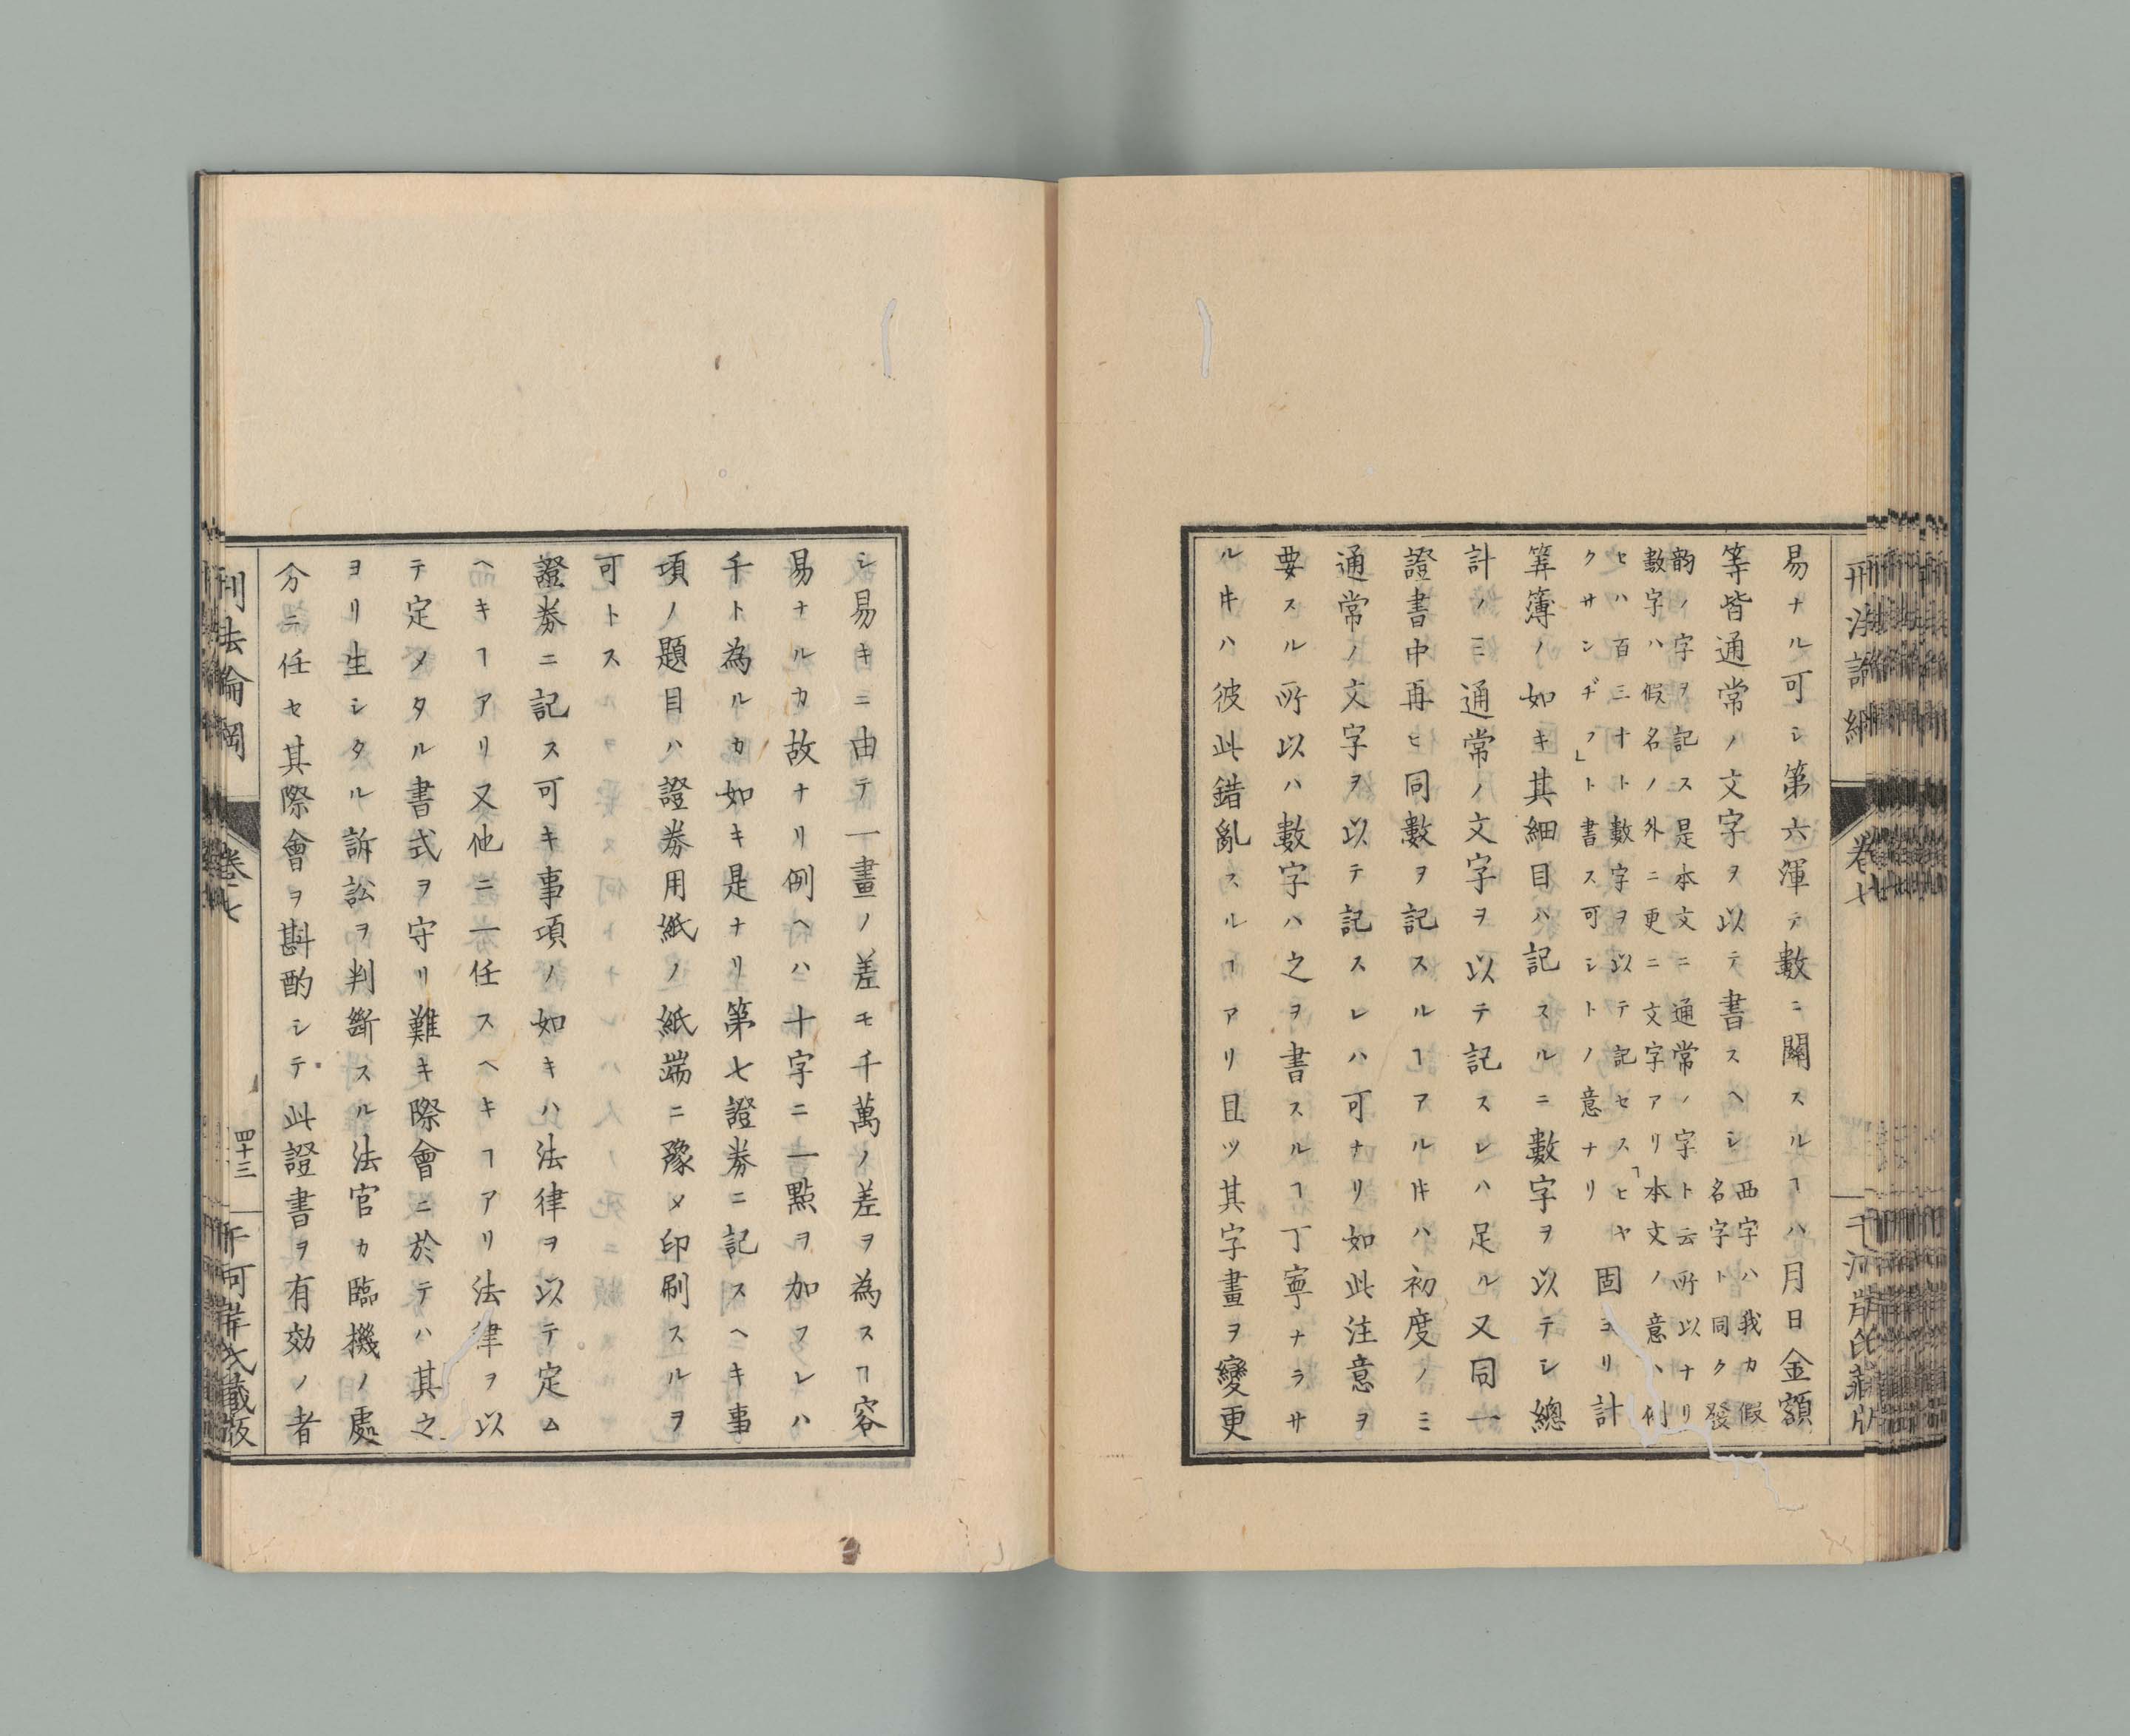 刑法論綱
卷七
千河岸氏藏版
易ナル可シ第六渾テ數ニ關スルヿハ月日金額
等皆通常ノ文字ヲ以テ書スヘシ
西字ハ我カ假
名字ト同ク發
韵ノ字ヲ記ス是本文ニ通常ノ字ト云所以ナリ
數字ハ假名ノ外ニ更ニ文字アリ本文ノ意ハ例
ヒハ百三十ト數字ヲ以テ記セス「ヒヤ
クサンヂフ」ト書ス可シトノ意ナリ
固ヨリ計
筭簿ノ如キ其細目ハ記スルニ數字ヲ以テシ總
計ノミ通常ノ文字ヲ以テ記スレハ足ル又同一
證書中再ヒ同數ヲ記スルヿアル片ハ初度ノミ
通常ノ文字ヲ以テ記スレハ可ナリ如此注意ヲ
要スル所以ハ數字ハ之ヲ書スルヿ丁寧ナラサ
ル片ハ彼此錯亂スルヿアリ且ツ其字畫ヲ變更
シ易キニ由テ一畫ノ差モ千萬ノ差ヲ為スヿ容
易ナルカ故ナリ例ヘハ十字ニ一點ヲ加フレハ
千ト為ルカ如キ是ナリ第七證劵ニ記スヘキ事
項ノ題目ハ證劵用紙ノ紙端ニ豫メ印刷スルヲ
可トス
證劵ニ記ス可キ事項ノ如キハ法律ヲ以テ定ム
ヘキヿアリ又他ニ一任スヘキヿアリ法律ヲ以
テ定メタル書式ヲ守リ難キ際會ニ於テハ其之
ヨリ生シタル訴訟ヲ判斷スル法官カ臨機ノ處
分ニ任セ其際會ヲ斟酌シテ此證書ヲ有効ノ者
刑法論綱
卷七
四十三
千河岸氏藏版